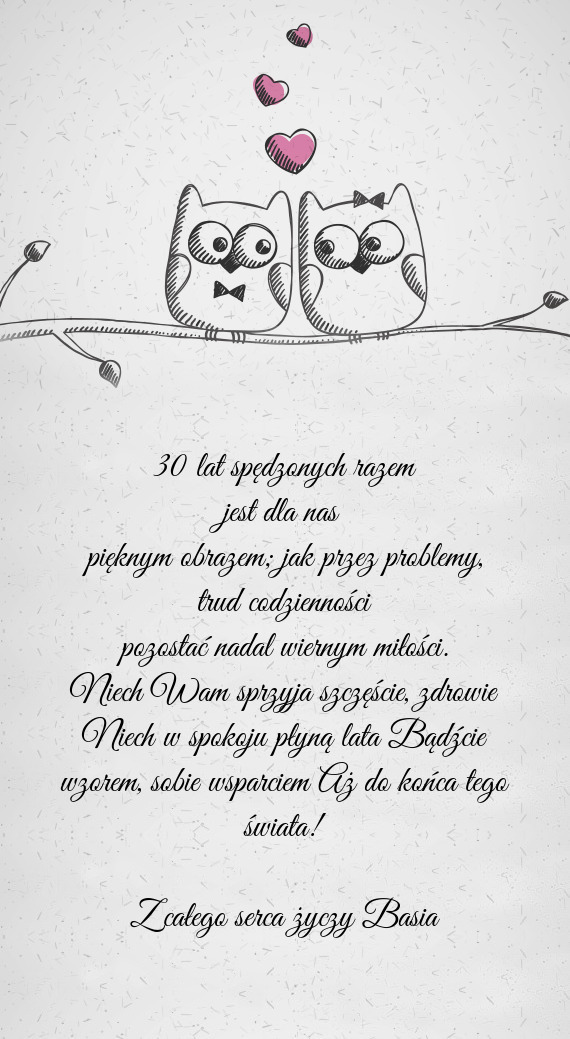 30 lat spędzonych razem
jest dla nas
pięknym obrazem; jak przez problemy,
trud codzienności
pozostać nadal wiernym miłości.
Niech Wam sprzyja szczęście, zdrowie
Niech w spokoju płyną lata Bądźcie
wzorem, sobie wsparciem Aż do końca tego
świata!
Zcałego serca życzy Basia